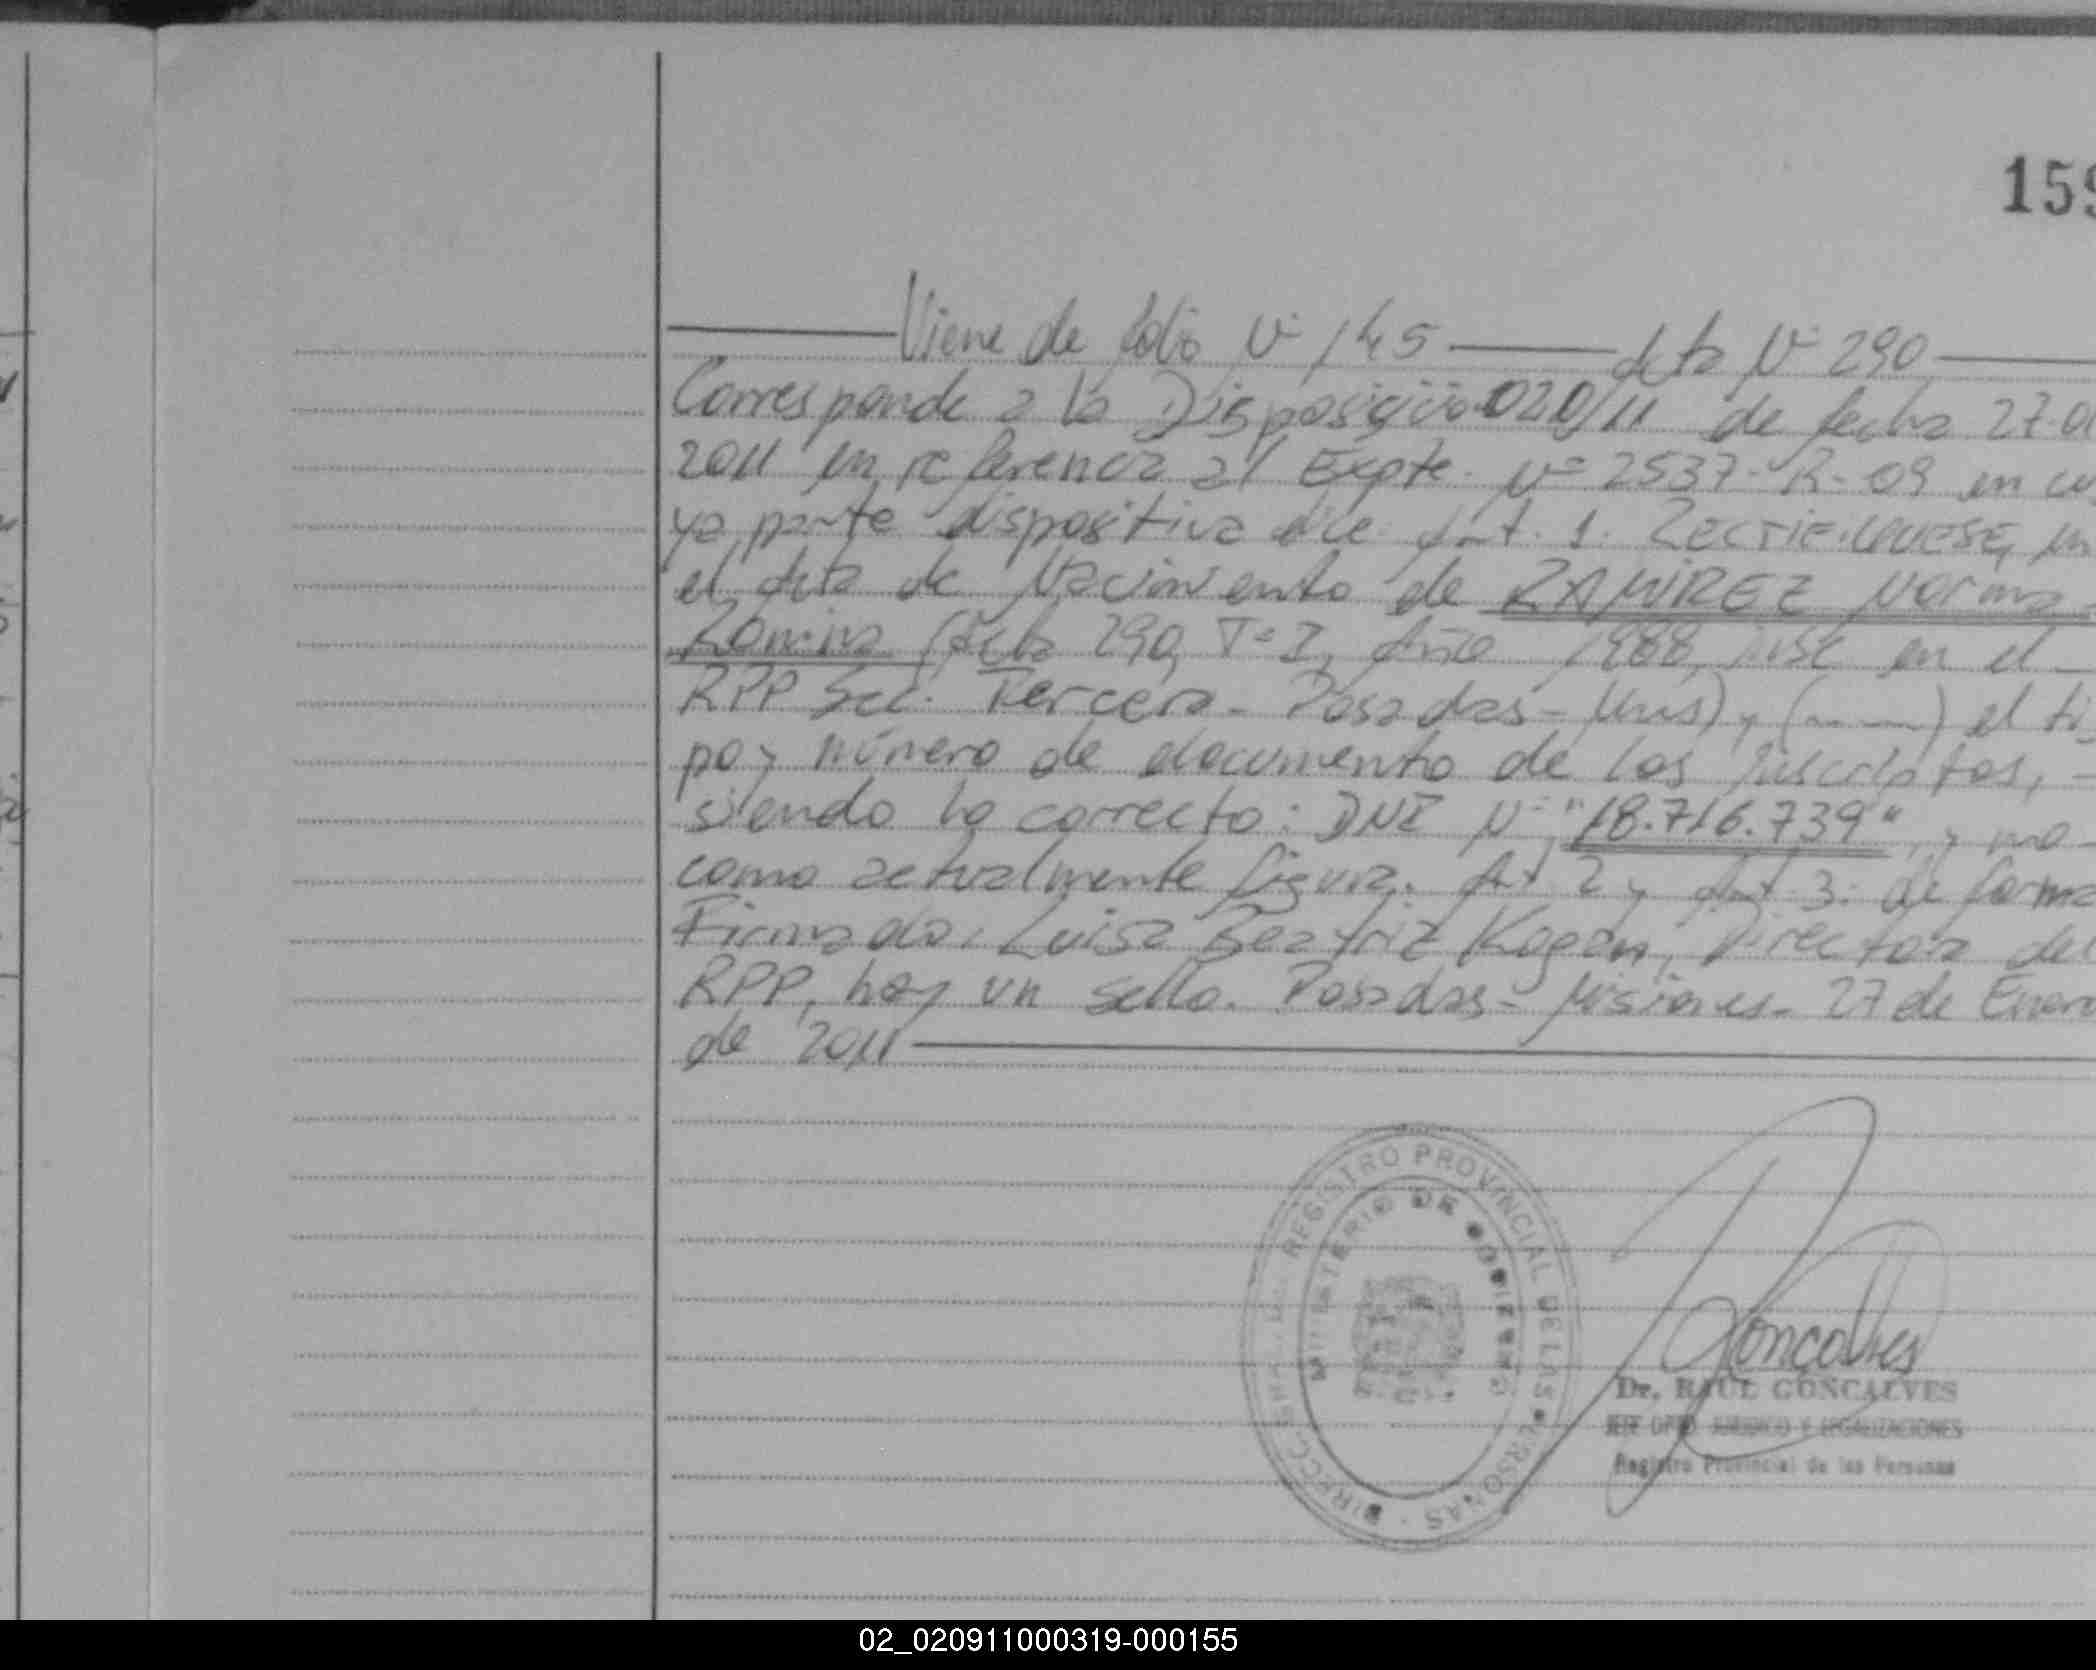 159
Viene de folio Nº 145 — Acta Nº 290
Corresponde a la Disposición 020/11 de fecha 27.01
2011 en referencia al Expte. Nº 2537-R-09 en cu
ya parte dispositiva dice: Art. 1. RECTIFIQUESE, en
el Acta de Nacimiento de RAMIREZ Norma
Romina (Acta 290, Tº I, Año 1988, Insc en el
RPP Sec. Tercera - Posadas - Mnes), (——) el ti
po y número de documento de los inscriptos,
siendo lo correcto: DNI Nº "18.716.739", y no
como actualmente figura. Art 2 y Art 3: de forma
Firmado: Luisa Beatriz Kogan, Directora del
RPP, hay un sello. Posadas - Misiones - 27 de Enero
de 2011
REGISTRO PROVINCIAL DE LAS PERSONAS
MINISTERIO DE GOBIERNO
Goncalves
Dr. RAUL GONCALVES
JEFE DPTO. JURIDICO Y LEGALIZACIONES
Registro Provincial de las Personas
02_020911000319-000155